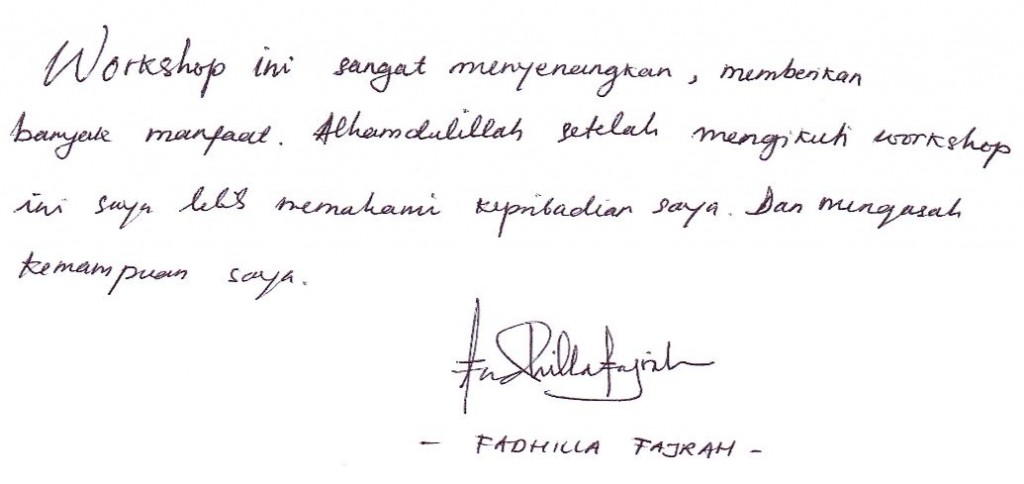 Workshop ini sangat menyenangkan, memberikan
banyak manfaat. Alhamdulillah setelah mengikuti workshop
ini saya lebih memahami kepribadian saya. Dan mengasah
kemampuan saya.
Fadhilla Fajrah
- FADHILLA FAJRAH -